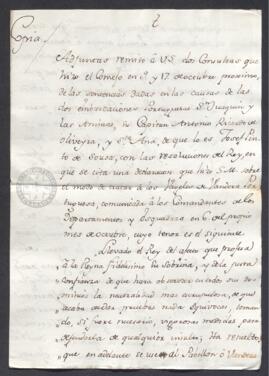 Copia.
Adjuntas remito à V.S. dos Consultas que
hizo el Consejo en 9. y 17. de octubre proximo,
de las sentencias dadas en las causas de las
dos embarcaciones Portuguesas Sn. Juaquin y
las Animas, su Capitan Antonio Ricardo de
Oliveyra, y Sta. Ana, de que lo es Josef Pin-
to de Sousa, con las resoluciones del Rey, en
que se cita una declaracion que hizo S.M. sobre
el modo de tratar à los Pavellon de Vandera Por-
tuguesa, comunicada à los Comandantes de los
Departamentos y Esquadras en 6. del propio
mes de octubre, cuyo tenor es el siguiente
Llevado el Rey del afecto que profesa
à la Reyna fidelisima su Sobrina, y de la justa
confianza de que hara observar en todos sus do-
minios la neutralidad mas escrupulosa, de que
acaba de dar pruebas nada equivocas, toman-
do, si fuere necesario, vigorosas medidas para
defenderla de qualquier insulto; Ha resuelto,
que en adelante se use del Pavellon ò Vandera